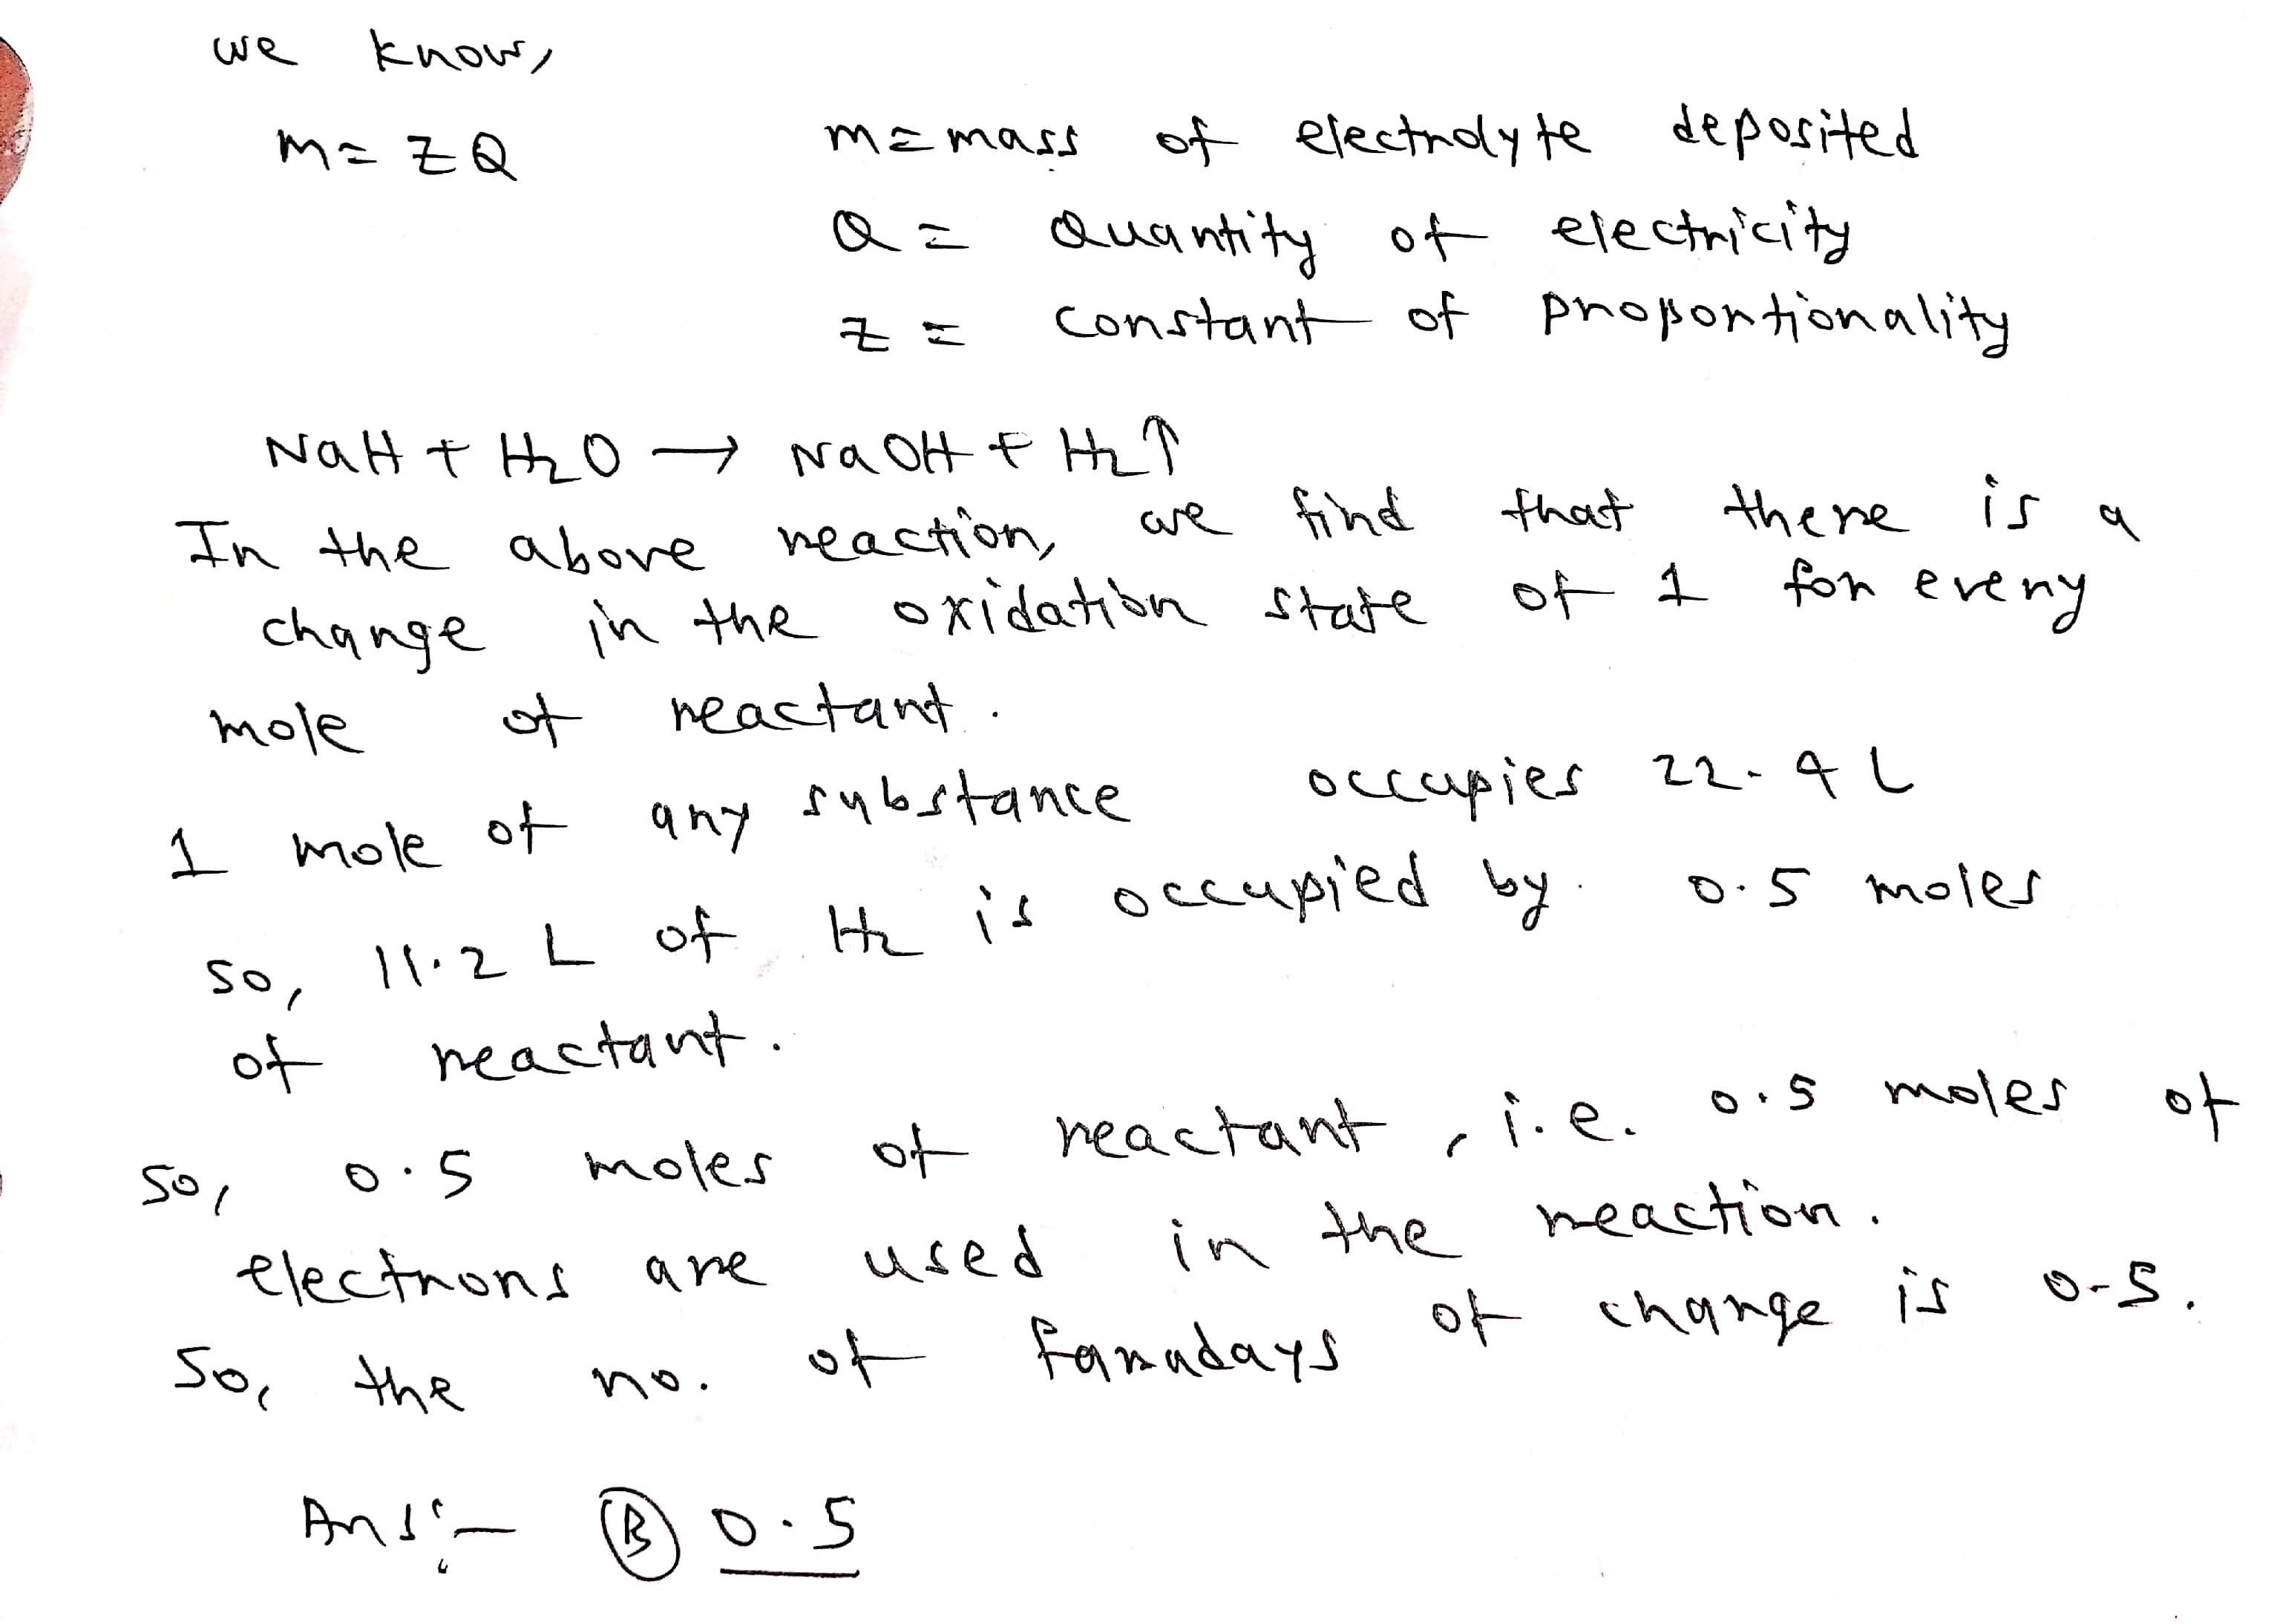 we know,
m = ZQ
m = mass of electrolyte deposited
Q = Quantity of electricity
z = constant of proportionality
NaH + H₂O → NaOH + H₂↑
In the above reaction, we find that there is a
change in the oxidation state of 1 for every
mole of reactant.
1 mole of any substance occupies 22.4 L
so, 11.2 L of H₂ is occupied by 0.5 moles
of reactant.
so, 0.5 moles of reactant, i.e. 0.5 moles of
electrons are used in the reaction.
So, the no. of faradays of change is 0.5.
Ans:- Ⓑ 0.5